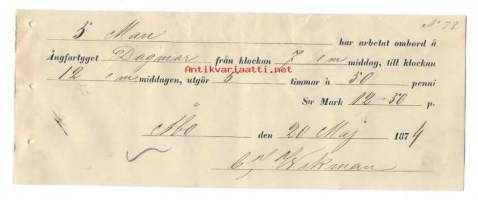 No 72
5 Man har arbetat ombord å
Ångfartyget Dagmar från klockan 7 e m middag, till klockan
12 e m middagen, utgör 5 timmar à 50 penni
S:r Mark 12-50 p.
Åbo den 20 Maj 1874
Wikman
Antikvariaatti.net